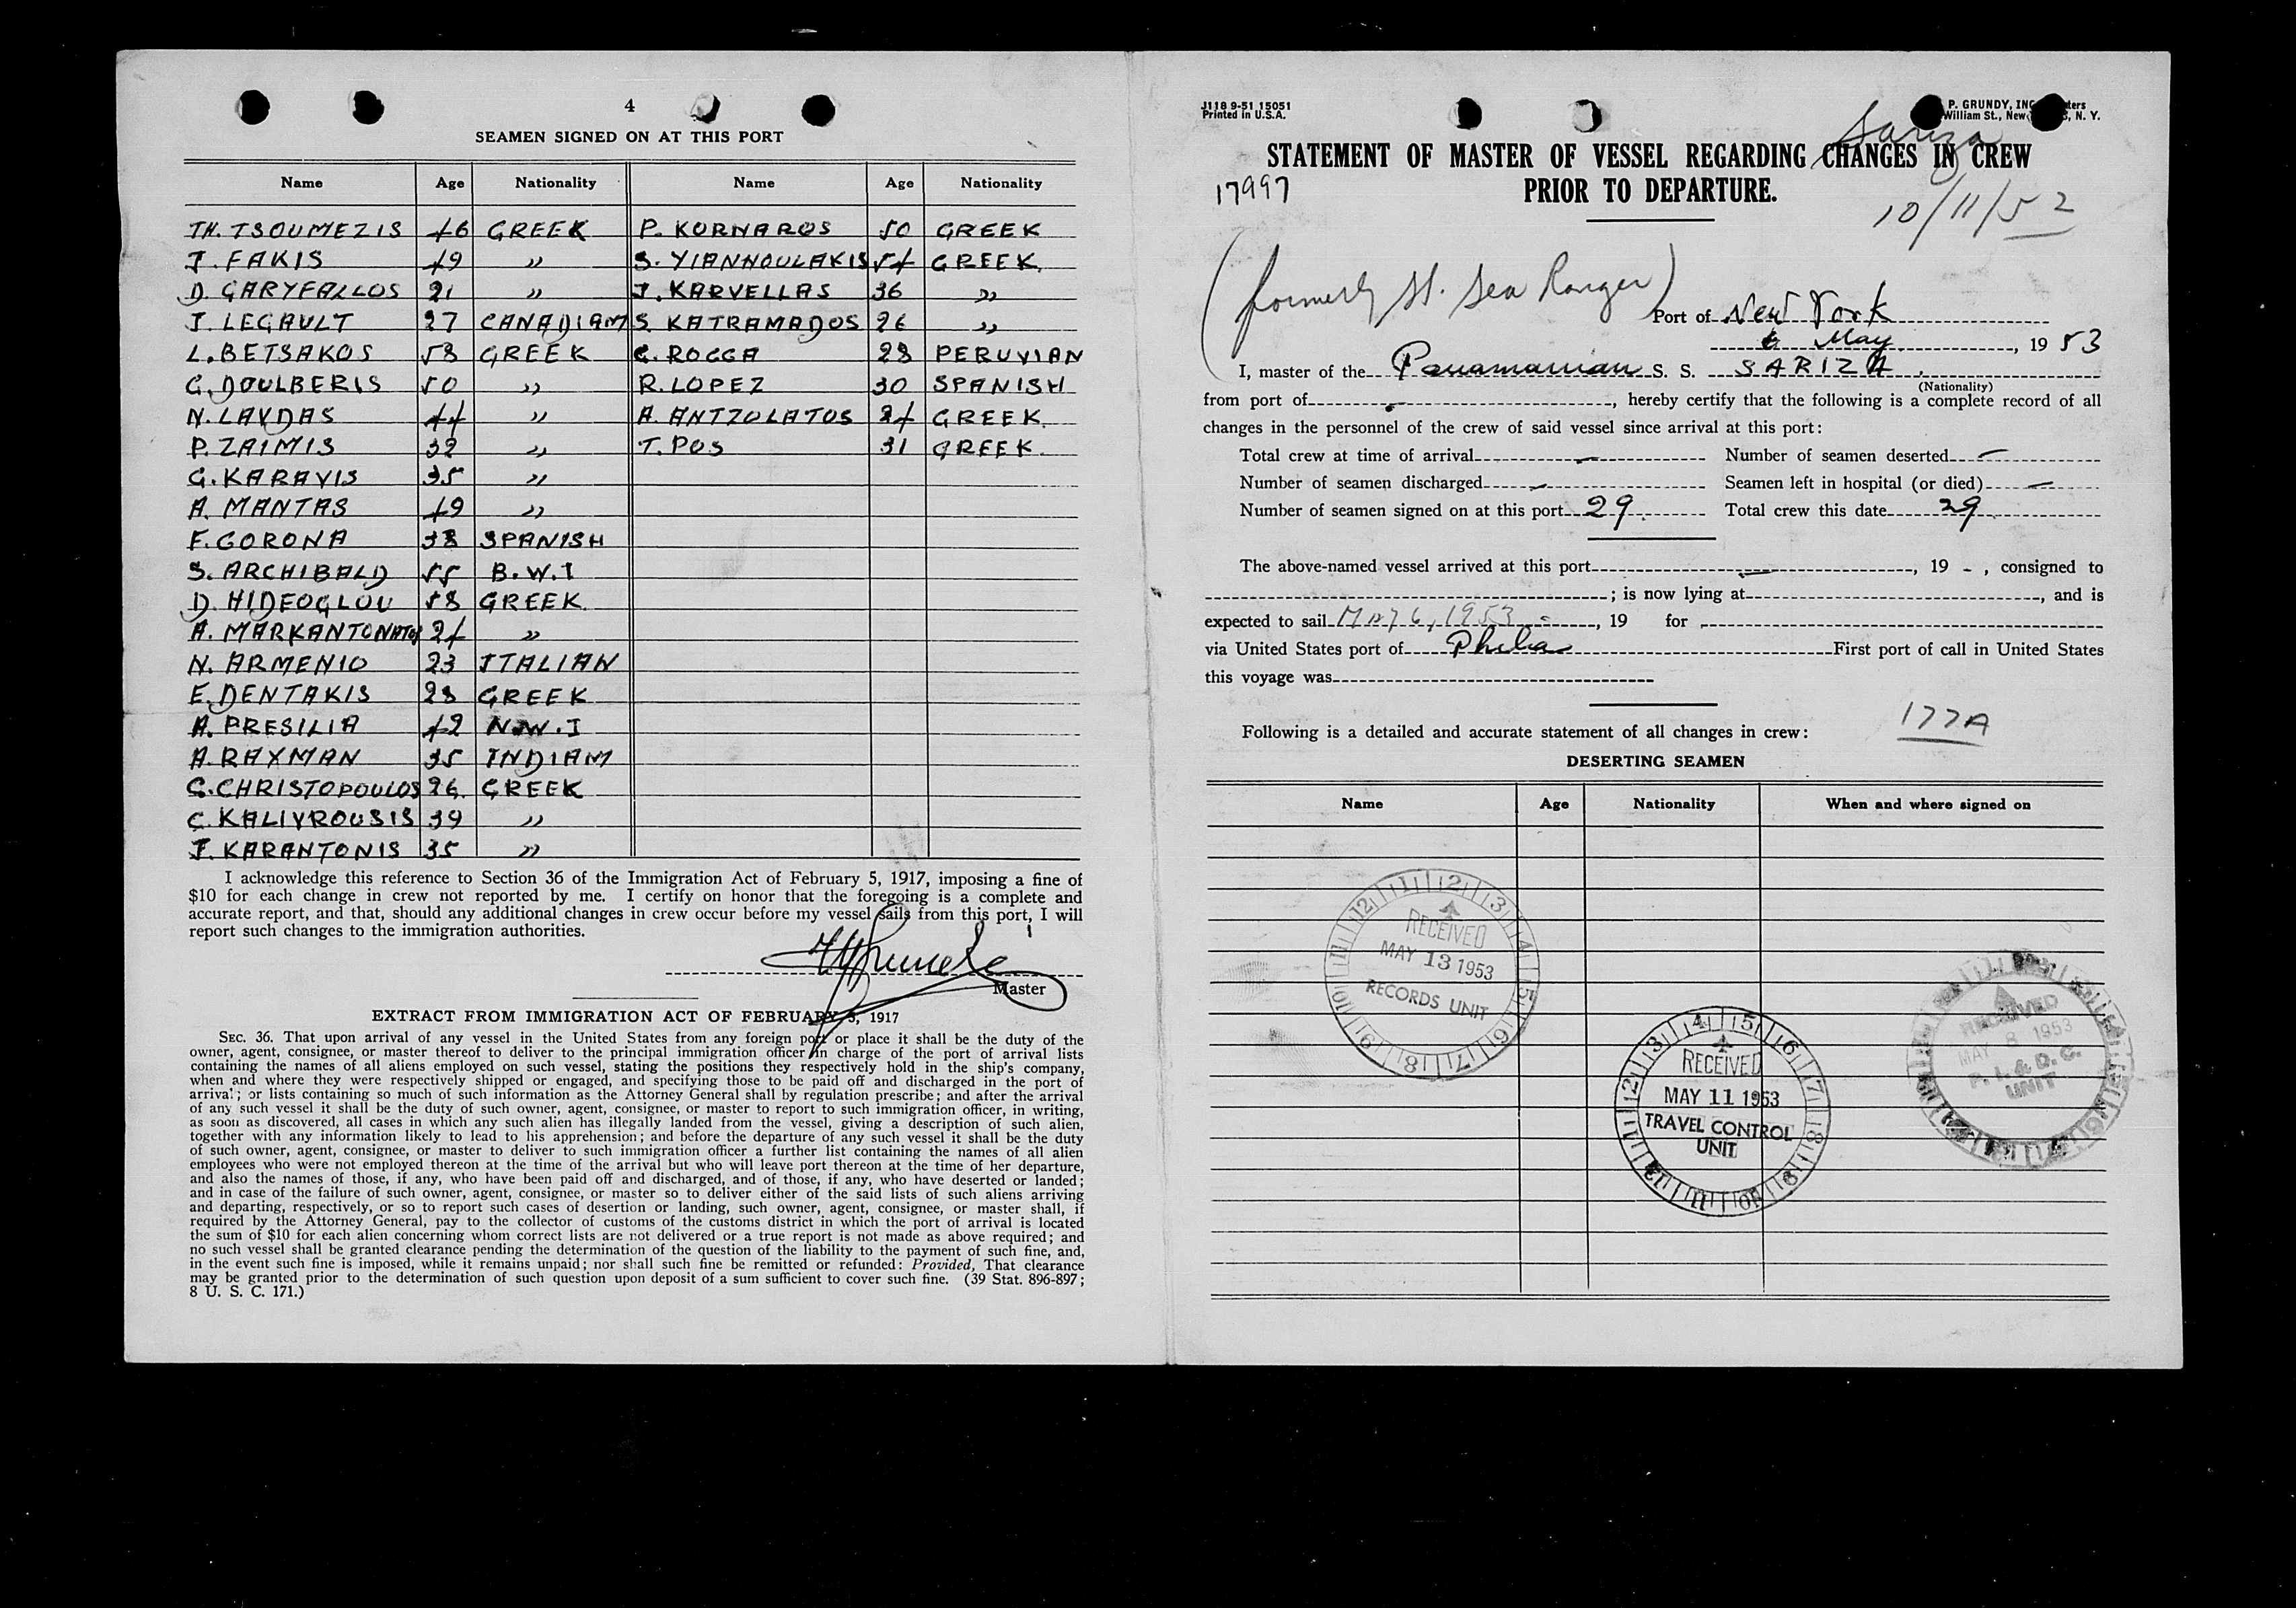 4
SEAMEN SIGNED ON AT THIS PORT
Name Age Nationality Name Age Nationality
TH. TSOUMEZIS 46 GREEK P. KORNAROS 50 GREEK
J. FAKIS 49 " S. YIANNOULAKIS 54 GREEK
D. GARYFALLOS 21 " J. KARVELLAS 36 "
J. LEGAULT 27 CANADIAN S. KATRAMADOS 26 "
L. BETSAKOS 58 GREEK C. ROCCA 28 PERUVIAN
G. DOULBERIS 50 " R. LOPEZ 30 SPANISH
N. LAVDAS 44 " A. ANTZOLATOS 24 GREEK
P. ZAIMIS 32 " T. POS 31 GREEK
G. KARAVIS 35 "
A. MANTAS 49 "
F. GORONA 38 SPANISH
S. ARCHIBALD 55 B.W.I
D. HIDEOGLOU 58 GREEK
A. MARKANTONATOS 24 "
N. ARMENIO 23 ITALIAN
E. DENTAKIS 28 GREEK
A. PRESILIA 42 N.W.I
A. RAXMAN 35 INDIAN
G. CHRISTOPOULOS 26 GREEK
C. KALIVROUSIS 39 "
J. KARANTONIS 35 "
I acknowledge this reference to Section 36 of the Immigration Act of February 5, 1917, imposing a fine of
$10 for each change in crew not reported by me. I certify on honor that the foregoing is a complete and
accurate report, and that, should any additional changes in crew occur before my vessel sails from this port, I will
report such changes to the immigration authorities.
Master
EXTRACT FROM IMMIGRATION ACT OF FEBRUARY 5, 1917
SEC. 36. That upon arrival of any vessel in the United States from any foreign port or place it shall be the duty of the
owner, agent, consignee, or master thereof to deliver to the principal immigration officer in charge of the port of arrival lists
containing the names of all aliens employed on such vessel, stating the positions they respectively hold in the ship's company,
when and where they were respectively shipped or engaged, and specifying those to be paid off and discharged in the port of
arrival; or lists containing so much of such information as the Attorney General shall by regulation prescribe; and after the arrival
of any such vessel it shall be the duty of such owner, agent, consignee, or master to report to such immigration officer, in writing,
as soon as discovered, all cases in which any such alien has illegally landed from the vessel, giving a description of such alien,
together with any information likely to lead to his apprehension; and before the departure of any such vessel it shall be the duty
of such owner, agent, consignee, or master to deliver to such immigration officer a further list containing the names of all alien
employees who were not employed thereon at the time of the arrival but who will leave port thereon at the time of her departure,
and also the names of those, if any, who have been paid off and discharged, and of those, if any, who have deserted or landed;
and in case of the failure of such owner, agent, consignee, or master so to deliver either of the said lists of such aliens arriving
and departing, respectively, or so to report such cases of desertion or landing, such owner, agent, consignee, or master shall, if
required by the Attorney General, pay to the collector of customs of the customs district in which the port of arrival is located
the sum of $10 for each alien concerning whom correct lists are not delivered or a true report is not made as above required; and
no such vessel shall be granted clearance pending the determination of the question of the liability to the payment of such fine, and,
in the event such fine is imposed, while it remains unpaid; nor shall such fine be remitted or refunded: Provided, That clearance
may be granted prior to the determination of such question upon deposit of a sum sufficient to cover such fine. (39 Stat. 896-897;
8 U. S. C. 171.)
J118 9-51 15051
Printed in U.S.A.
P. GRUNDY, INC
William St., New N. Y.
Sariza
STATEMENT OF MASTER OF VESSEL REGARDING CHANGES IN CREW
PRIOR TO DEPARTURE.
17997
10/11/52
(formerly St. Sea Ranger)
Port of New York
6 May, 1953
I, master of the Panamanian S. S. SARIZA
(Nationality)
from port of -, hereby certify that the following is a complete record of all
changes in the personnel of the crew of said vessel since arrival at this port:
Total crew at time of arrival - Number of seamen deserted -
Number of seamen discharged - Seamen left in hospital (or died) -
Number of seamen signed on at this port 29. Total crew this date 29
The above-named vessel arrived at this port -, 19 - , consigned to
; is now lying at , and is
expected to sail May 6, 1953 -, 19 for
via United States port of Phila First port of call in United States
this voyage was
177A
Following is a detailed and accurate statement of all changes in crew:
DESERTING SEAMEN
Name Age Nationality When and where signed on
RECEIVED
MAY 13 1953
RECORDS UNIT
RECEIVED
MAY 11 1953
TRAVEL CONTROL
UNIT
RECEIVED
MAY 8 1953
P. I. & D. C.
UNIT